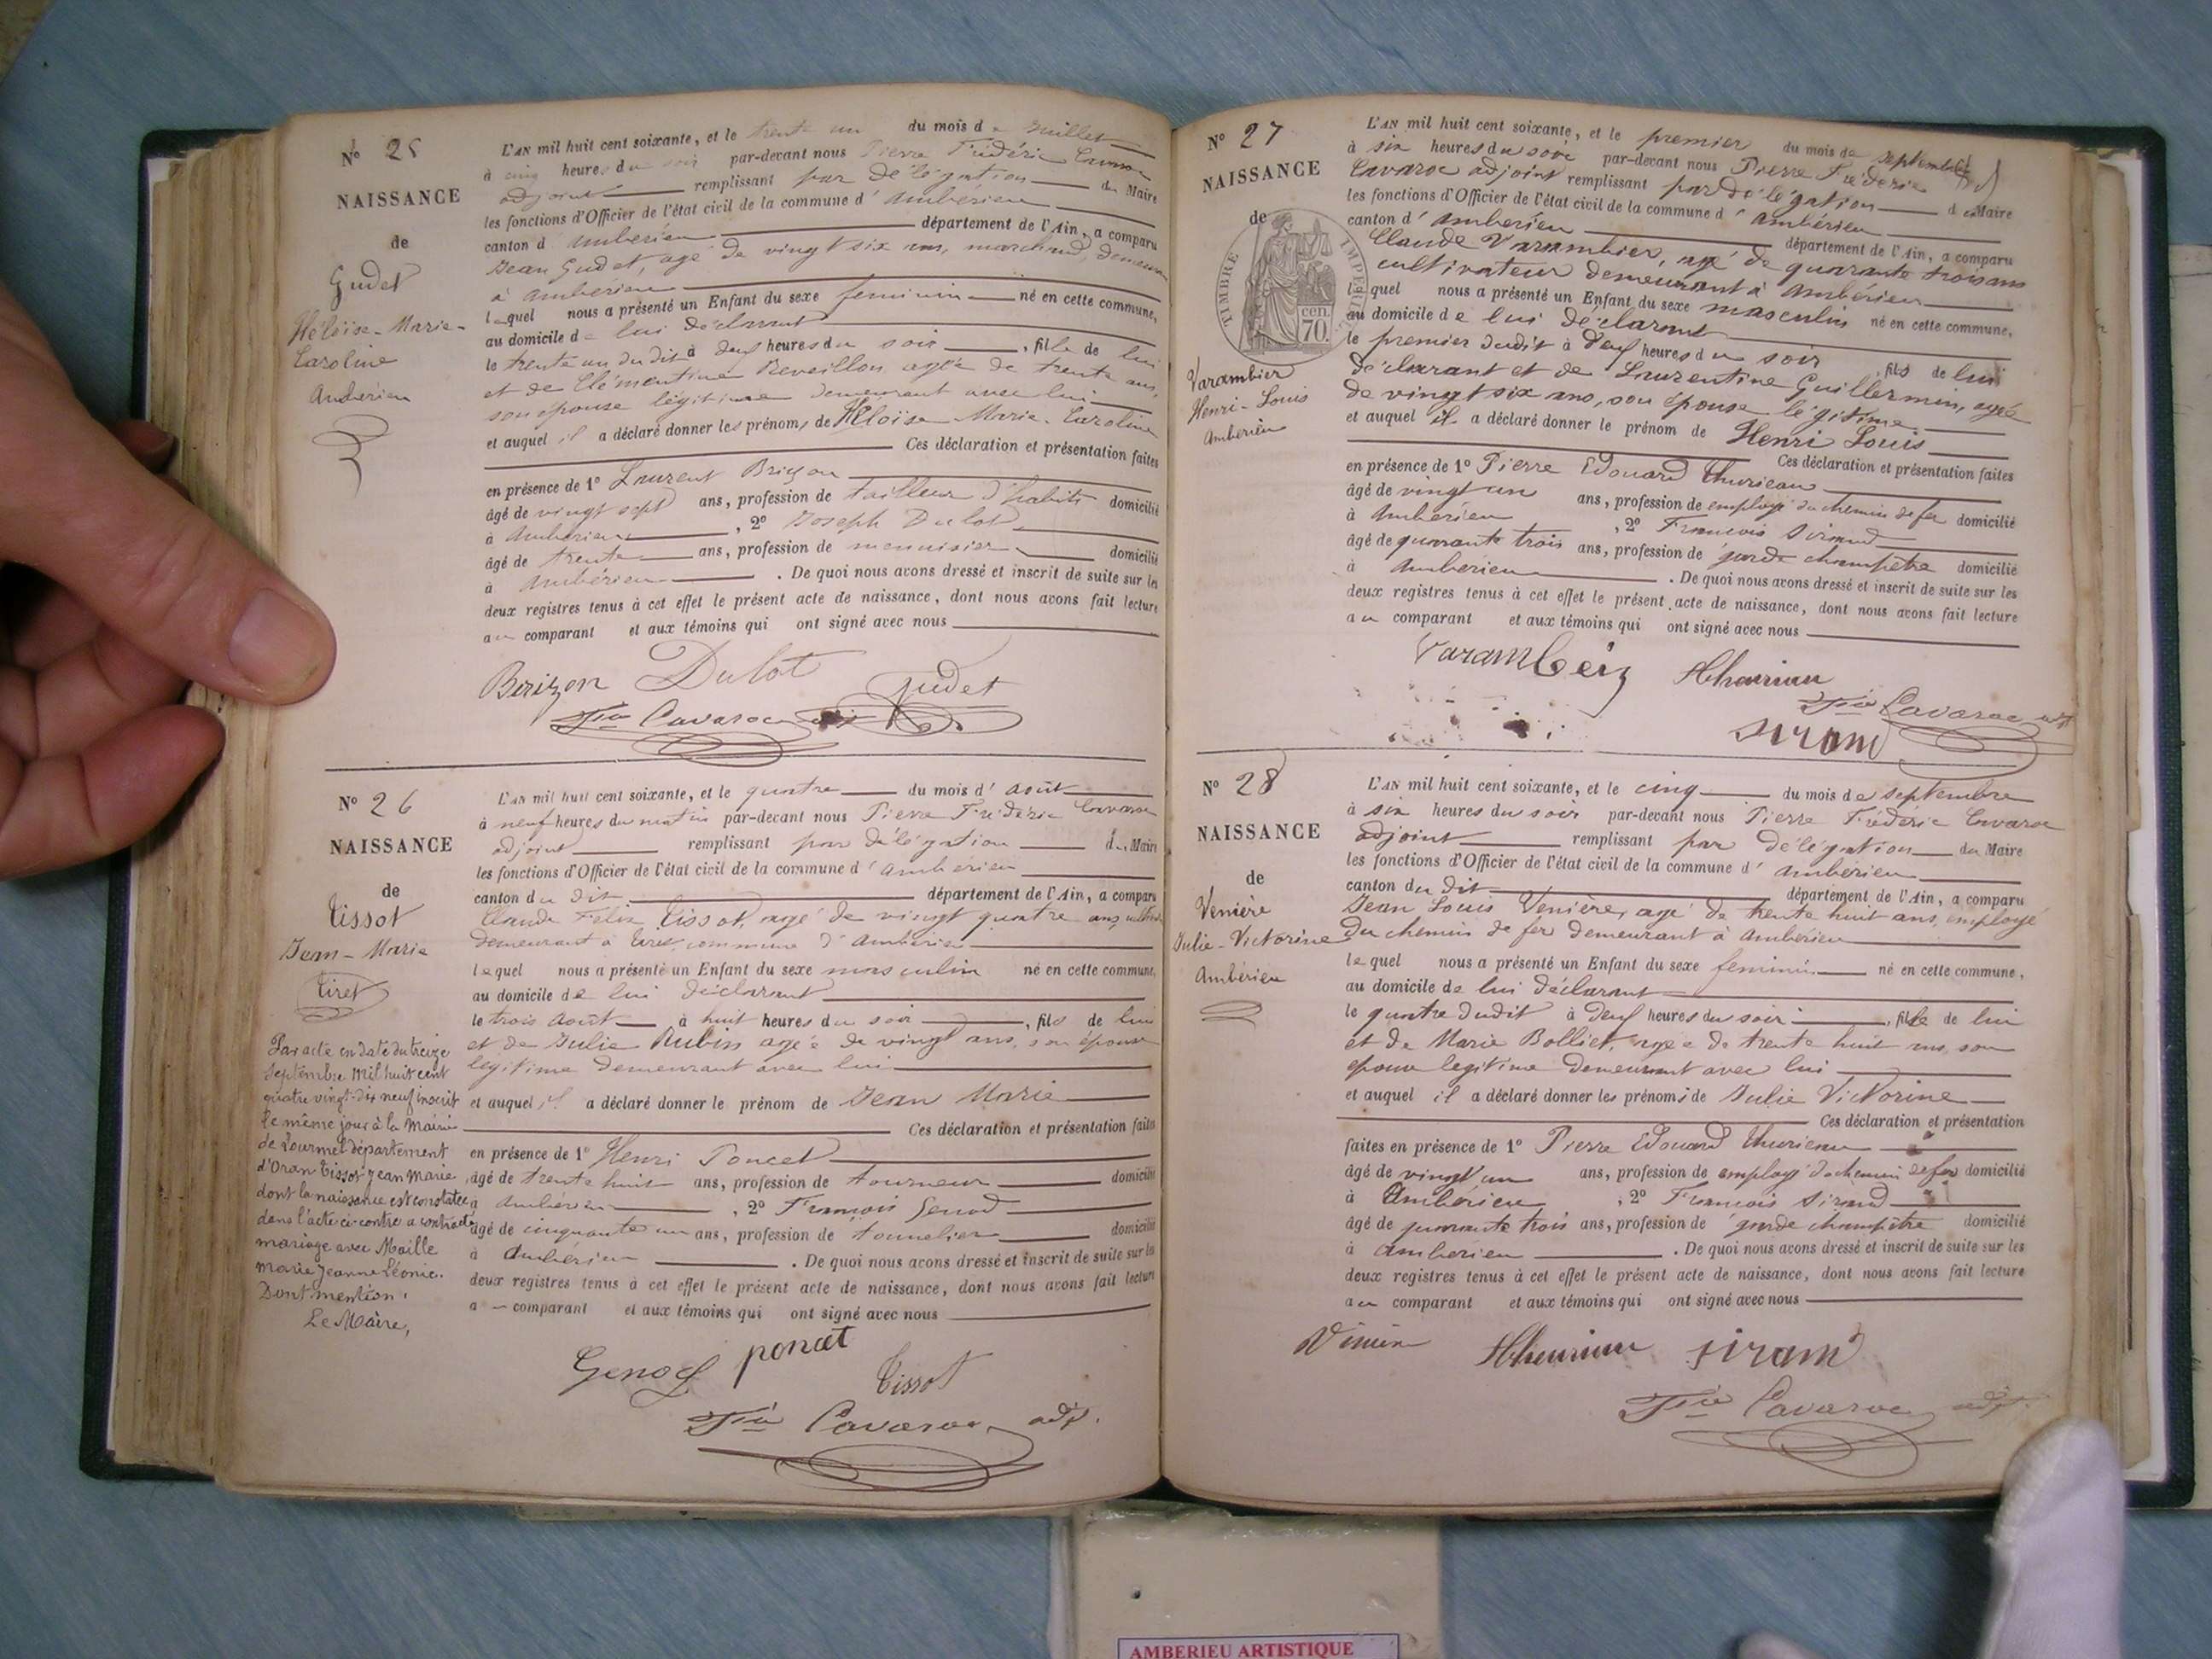 N° 25
NAISSANCE
de
Gudet
Héloïse-Marie-
Caroline
Ambérieu
L'AN mil huit cent soixante, et le trente un du mois de Juillet
à cinq heures du soir par-devant nous Pierre Frédéric Cavaroc
adjoint remplissant par délégation du Maire
les fonctions d'Officier de l'état civil de la commune d'Ambérieu
canton d'Ambérieu département de l'Ain, a comparu
Jean Gudet, agé de vingt six ans, marchand, demeurant
à Ambérieu
lequel nous a présenté un Enfant du sexe feminin né en cette commune,
au domicile de lui déclarant
le trente un dudit à deux heures du soir, fille de lui
et de Clémentine Reveillon agée de trente ans,
son épouse légitime demeurant avec lui
et auquel il a déclaré donner les prénoms de Héloïse Marie-Caroline
Ces déclaration et présentation faites
en présence de 1° Laurent Brizon
âgé de vingt sept ans, profession de tailleur d'habits domicilié
à Ambérieu, 2° Joseph Dulot
âgé de trente ans, profession de menuisier domicilié
à Ambérieu. De quoi nous avons dressé et inscrit de suite sur les
deux registres tenus à cet effet le présent acte de naissance, dont nous avons fait lecture
au comparant et aux témoins qui ont signé avec nous
Brizon Dulot Gudet
Fric Cavaroc
N° 26
NAISSANCE
de
Tissot
Jean-Marie
Tiret
Par acte en date du treize
Septembre Mil huit cent
quatre vingt-dix neuf inscrit
le même jour à la Mairie
de Lourmel département
d'Oran Tissot Jean Marie
dont la naissance est constatée
dans l'acte ci-contre a contracté
mariage avec Maille
Marie Jeanne Léonie.
Dont mention.
Le Maire,
L'AN mil huit cent soixante, et le quatre du mois d'août
à neuf heures du matin par-devant nous Pierre Frédéric Cavaroc
adjoint remplissant par délégation du Maire
les fonctions d'Officier de l'état civil de la commune d'Ambérieu
canton du dit département de l'Ain, a comparu
Claude Félix Tissot, agé de vingt quatre ans,
demeurant à Tiret, commune d'Ambérieu
lequel nous a présenté un Enfant du sexe masculin né en cette commune,
au domicile de lui déclarant
le trois août à huit heures du soir, fils de lui
et de Julie Rubin agée de vingt ans, son épouse
légitime demeurant avec lui
et auquel il a déclaré donner le prénom de Jean Marie
Ces déclaration et présentation faites
en présence de 1° Henri Poncet
âgé de trente huit ans, profession de tourneur domicilié
à Ambérieu, 2° François Genod
âgé de cinquante un ans, profession de tonnelier domicilié
à Ambérieu. De quoi nous avons dressé et inscrit de suite sur les
deux registres tenus à cet effet le présent acte de naissance, dont nous avons fait lecture
au comparant et aux témoins qui ont signé avec nous
Genod poncet
Tissot
Fric Cavaroc adjt.
N° 27
NAISSANCE
de
TIMBRE IMPÉRIAL
70 cen.
Varambier
Henri-Louis
Ambérieu
L'AN mil huit cent soixante, et le premier du mois de septembre
à six heures du soir par-devant nous Pierre Frédéric
Cavaroc adjoint remplissant par délégation du Maire
les fonctions d'Officier de l'état civil de la commune d'Ambérieu
canton d'Ambérieu département de l'Ain, a comparu
Claude Varambier, agé de quarante trois ans
cultivateur demeurant à Ambérieu
lequel nous a présenté un Enfant du sexe masculin né en cette commune,
au domicile de lui déclarant
le premier dudit à deux heures du soir, fils de lui
déclarant et de Laurentine Guillermin, agée
de vingt six ans, son épouse légitime
et auquel il a déclaré donner le prénom de Henri Louis
Ces déclaration et présentation faites
en présence de 1° Pierre Edouard Thurieau
âgé de vingt un ans, profession de employé du chemin de fer domicilié
à Ambérieu, 2° François Sirand
âgé de quarante trois ans, profession de garde champêtre domicilié
à Ambérieu. De quoi nous avons dressé et inscrit de suite sur les
deux registres tenus à cet effet le présent acte de naissance, dont nous avons fait lecture
au comparant et aux témoins qui ont signé avec nous
Fric Cavaroc adjt
N° 28
NAISSANCE
de
Venière
Julie-Victorine
Ambérieu
L'AN mil huit cent soixante, et le cinq du mois de septembre
à six heures du soir par-devant nous Pierre Frédéric Cavaroc
adjoint remplissant par délégation du Maire
les fonctions d'Officier de l'état civil de la commune d'Ambérieu
canton du dit département de l'Ain, a comparu
Jean Louis Venière, agé de trente huit ans, employé
du chemin de fer demeurant à Ambérieu
lequel nous a présenté un Enfant du sexe feminin né en cette commune,
au domicile de lui déclarant
le quatre dudit à deux heures du soir, fille de lui
et de Marie Bolliet, agée de trente huit ans, son
épouse legitime demeurant avec lui
et auquel il a déclaré donner les prénoms de Julie Victorine
Ces déclaration et présentation
faites en présence de 1° Pierre Edouard Thurieau
âgé de vingt un ans, profession de employé du chemin de fer domicilié
à Ambérieu, 2° François Sirand
âgé de quarante trois ans, profession de garde champêtre domicilié
à Ambérieu. De quoi nous avons dressé et inscrit de suite sur les
deux registres tenus à cet effet le présent acte de naissance, dont nous avons fait lecture
au comparant et aux témoins qui ont signé avec nous
Fric Cavaroc adjt.
AMBERIEU ARTISTIQUE